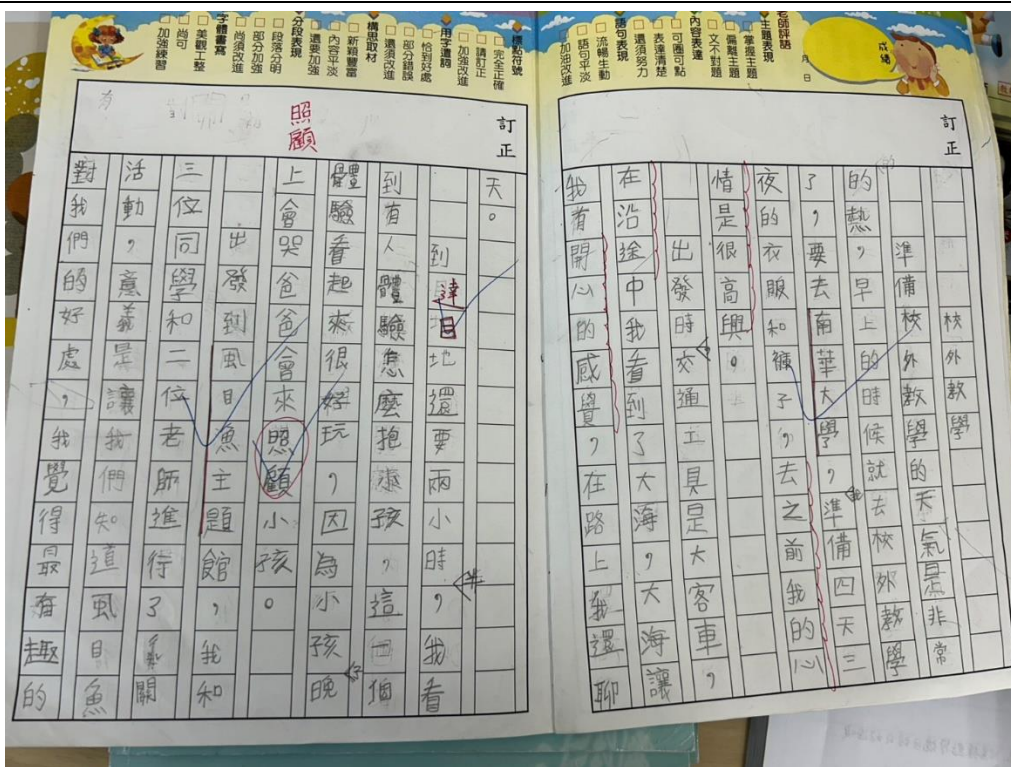 老師評語
月 日
成績
主題表現
□掌握主題
□偏離主題
□文不對題
內容表達
□可圈可點
□表達清楚
□還須努力
語句表現
□流暢生動
□語句平淡
□加油改進
訂正
校外教學
準備校外教學的天氣是非常
的熱，早上的時候就去校外教學
了，要去南華大學，準備四天三
夜的衣服和褲子，去之前我的心
情是很高興。
出發時交通工具是大客車，
在沿途中我看到了大海，大海讓
我有開心的感覺，在路上我還聊
標點符號
□完全正確
□請訂正
□加強改進
用字遣詞
□恰到好處
□部分錯誤
□還須改進
構思取材
□新穎豐富
□內容平淡
□還要加強
分段表現
□段落分明
□部分加強
□尚須改進
字體書寫
□美觀工整
□尚可
□加強練習
訂正
照顧
天。
到達目地還要兩小時，我看
到有人體驗怎麼抱孩，這個
體驗看起來很好玩，因為小孩晚
上會哭爸爸會來照顧小孩。
出發到風目魚主題館，我和
三位同學和二位老師進行了關
活動，意義是讓我們知道風目魚
對我們的好處，我覺得最有趣的